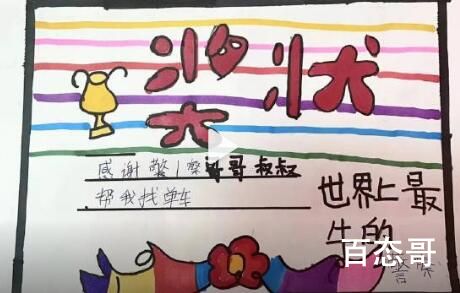 奖状
感谢警察哥哥叔叔
帮我找单车
世界上最
牛的
警察
百态哥